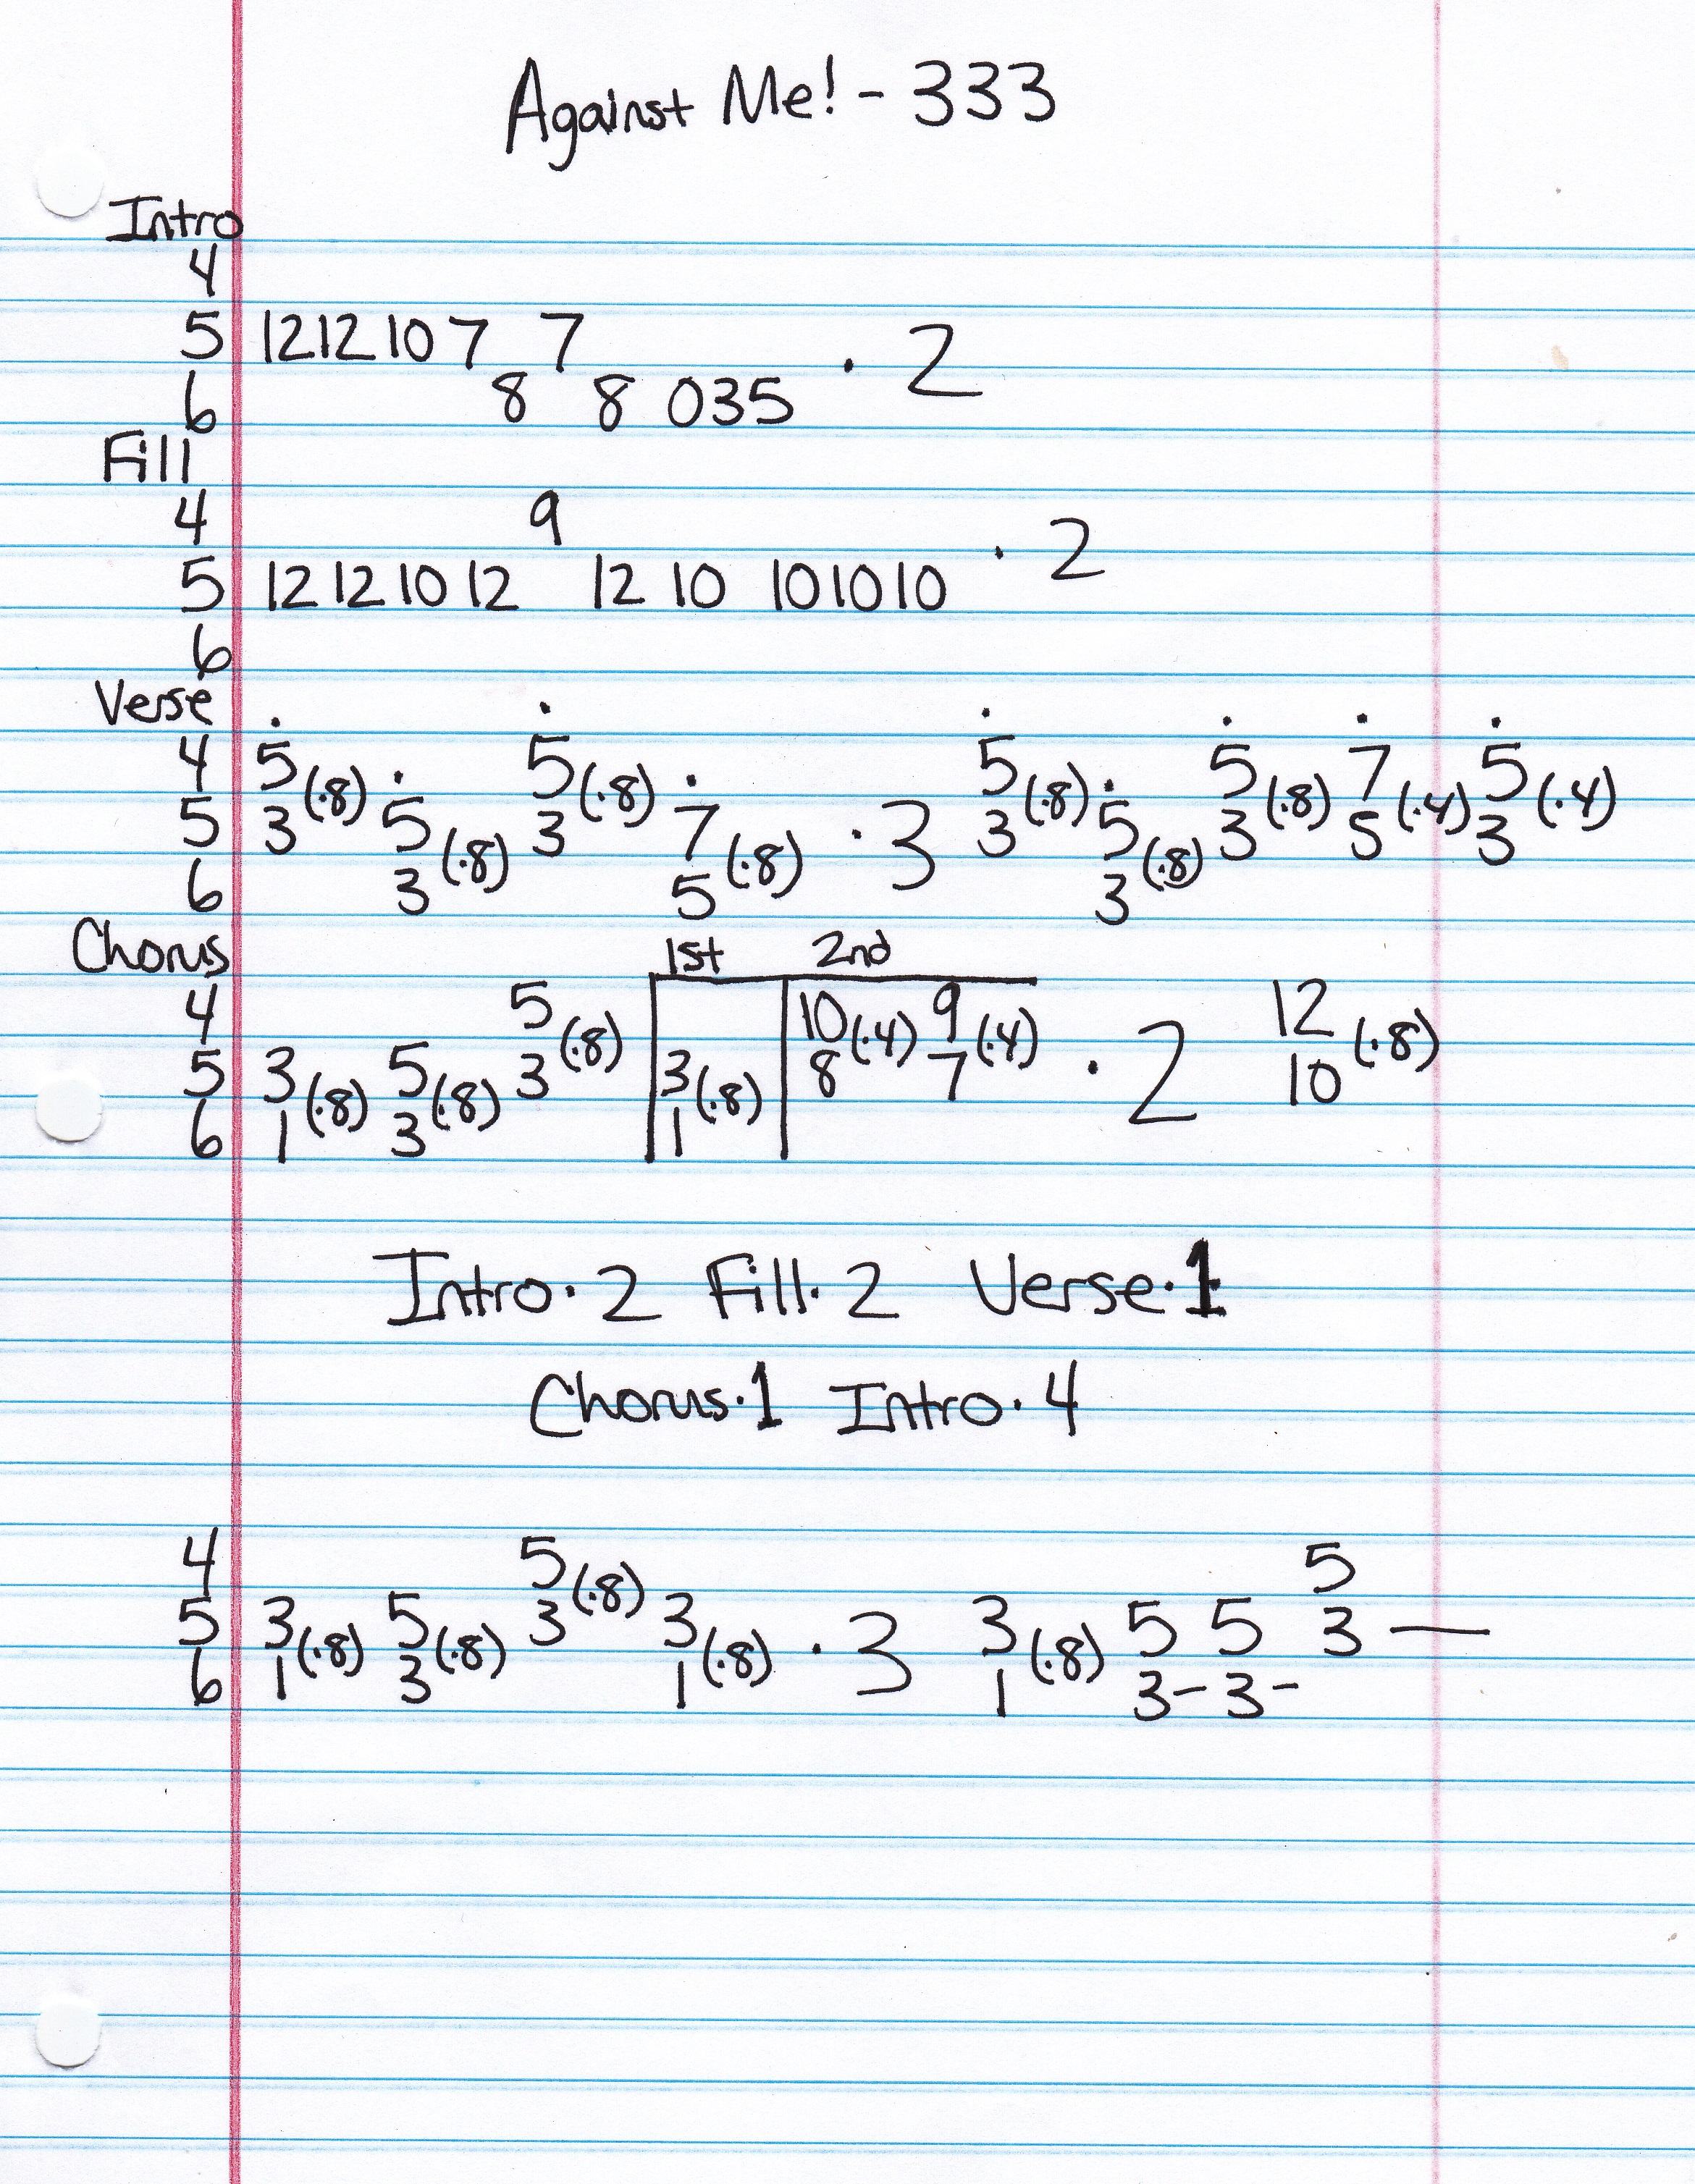 Against Me! - 333
Intro
4
5 12 12 10 7 7 · 2
6 8 8 0 3 5
Fill
4 9
5 12 12 10 12 12 10 10 10 10 · 2
6
Verse
4 5 (·8) 5 (·8) 5 (·8) 5 (·8) 7 (·4) 5 (·4)
5 3 5 (·8) 3 7 (·8) · 3 3 5 (·8) 3 5 3
6 3 5 3
Chorus 1st 2nd
4 5 (·8) 10 (·4) 9 (·4) 12 (·8)
5 3 (·8) 5 (·8) 3 3 (·8) 8 7 · 2 10
6 1 3 1
Intro · 2 Fill · 2 Verse · 1
Chorus · 1 Intro · 4
4 5 (·8) 5
5 3 (·8) 5 (·8) 3 3 (·8) · 3 3 (·8) 5 5 3 —
6 1 3 1 1 3 - 3 -